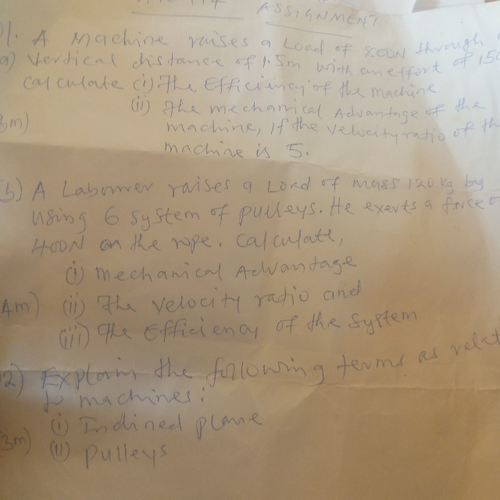 ASSIGNMENT
1. A Machine raises a Load of 800N through a
a) Vertical distance of 1.5m with an effort of 150
Calculate (i) The Efficiency of the machine
(ii) The mechanical Advantage of the
3m) machine, if the velocity ratio of the
machine is 5.
b) A Labourer raises a Load of mass 120kg by
Using 6 system of pulleys. He exerts a force of
400N on the rope. Calculate,
(i) mechanical Advantage
4m) (ii) The velocity ratio and
(iii) The Efficiency of the System
2) Explain the following terms as relat
to machines:
(i) Inclined plane
3m) (ii) pulleys